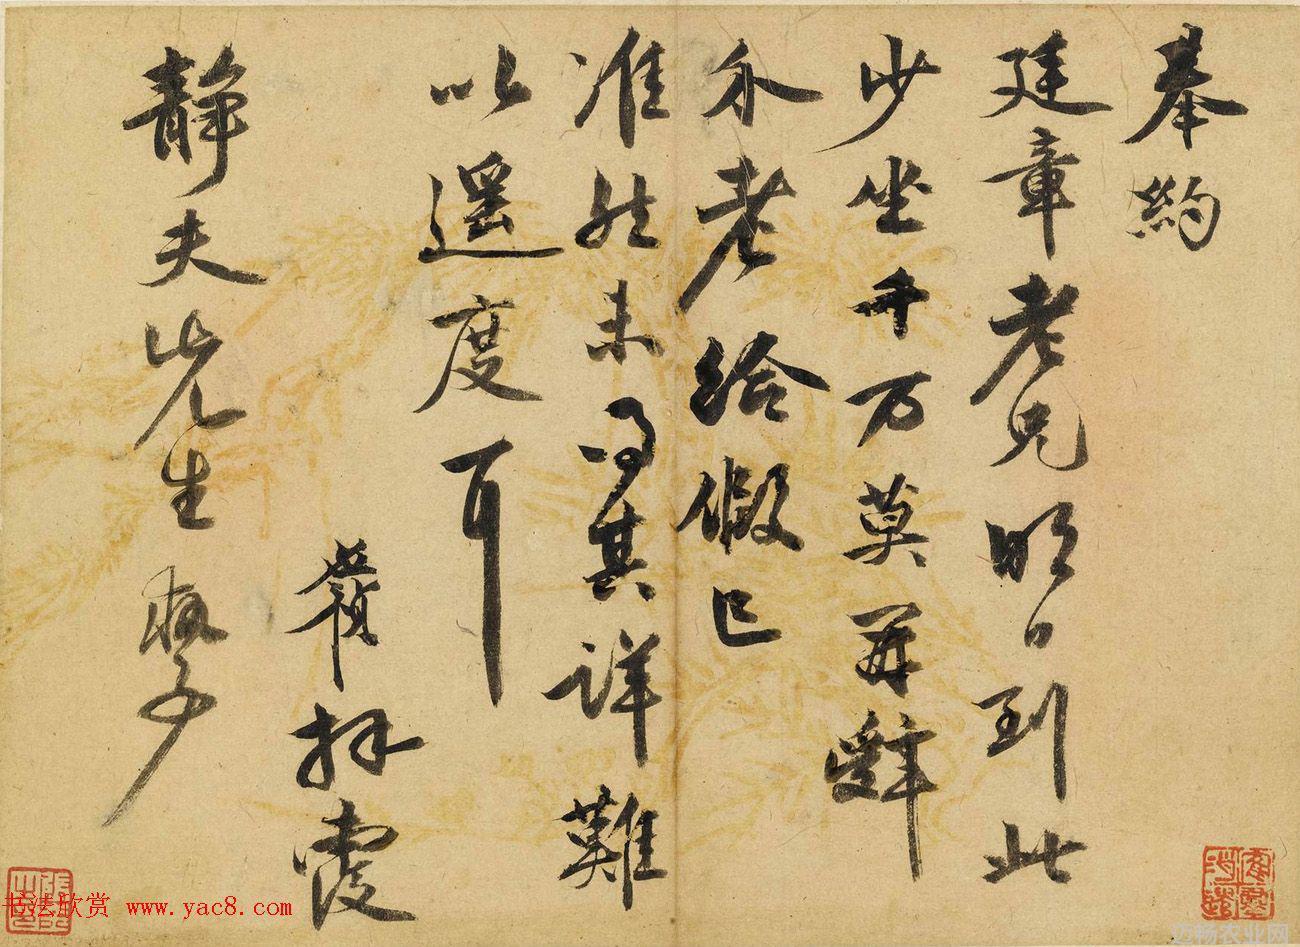 奉約
廷章老兄明日到此
少坐千万莫再辭
介老給假已
准然未得其詳難
以遥度耳
拜覆
靜夫先生執事
书法欣赏 www.yac8.com
迈畅农业网